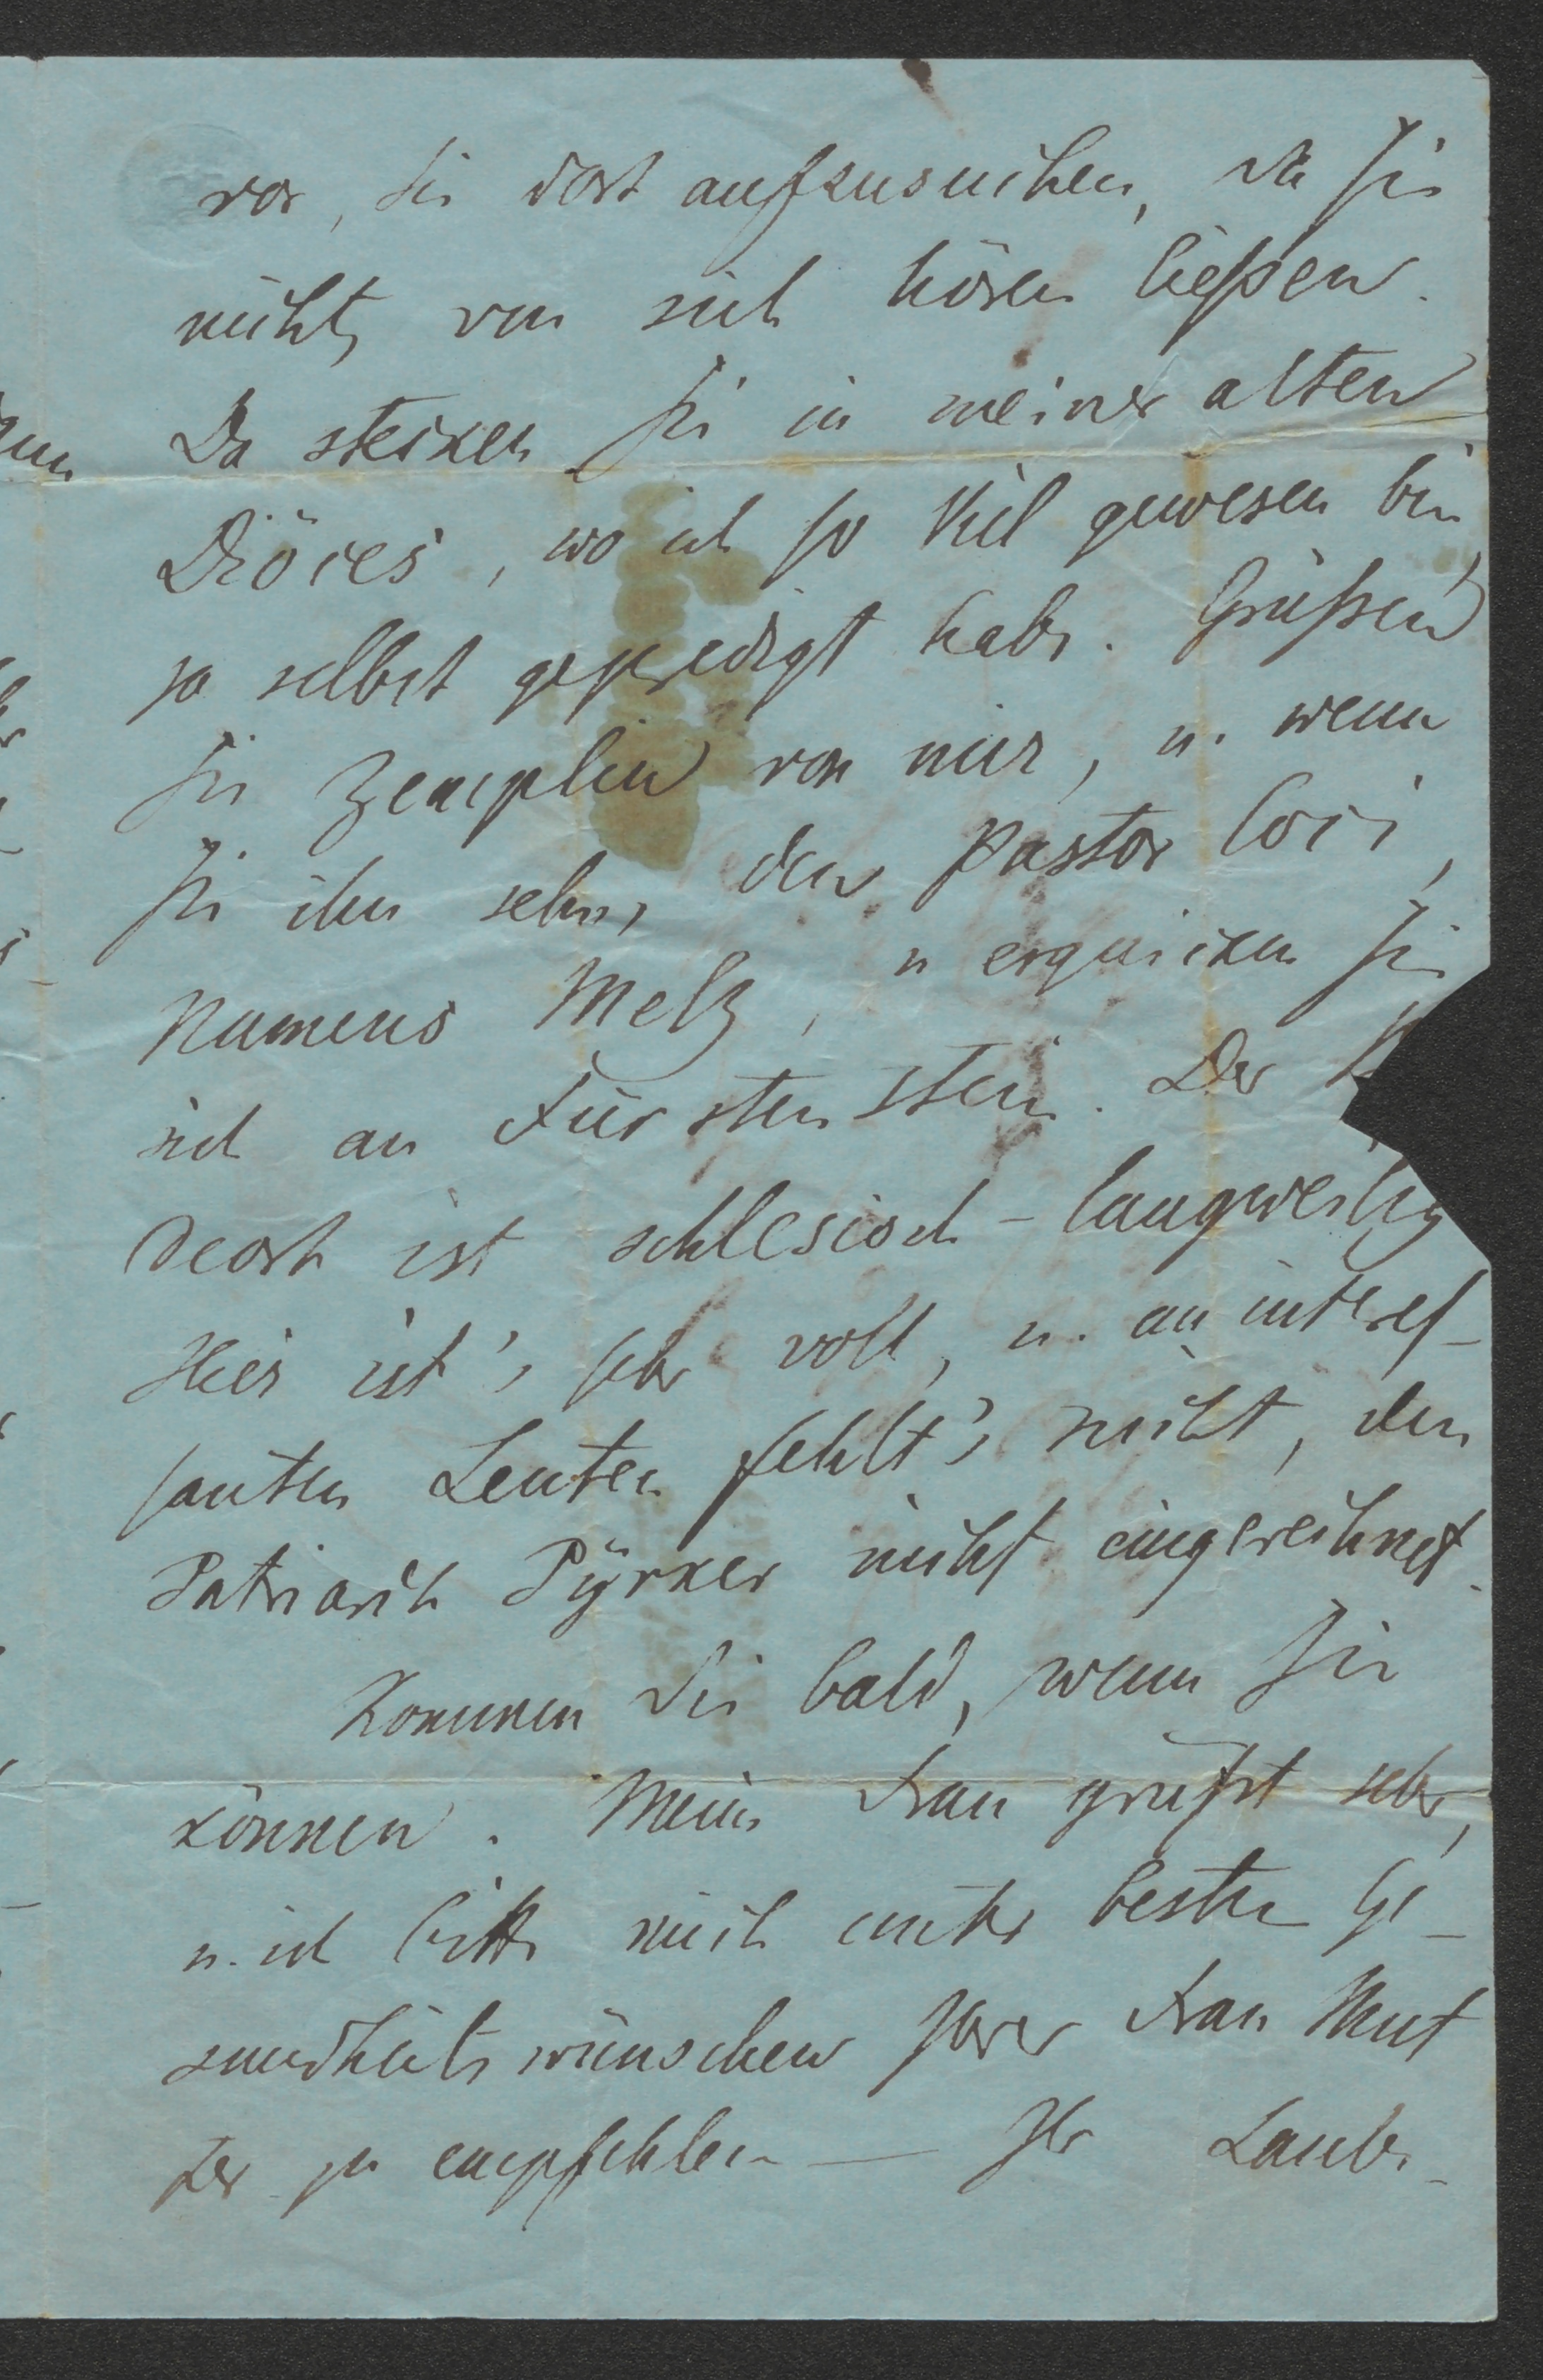 vor, Sie dort aufzusuchen, da Sie
nichts von sich hören ließen.
Da stecken Sie in meiner alten
Diöces, wo ich so viel gewesen bin,
ja selbst gepredigt habe. Grüßen
Sie Zemplin von mir, u. wenn
Sie ihn sehn, den Pastor loci,
Namens Melz, u erquicken Sie
sich an Fürstenstein. Der
ist schlesisch-langweilig
Hier ist's sehr voll, u. an interes-
santen Leuten fehlt's nicht, den
Patriarch Pyrker nicht eingerechnet.
Kommen Sie bald, wenn Sie
können. Meine Frau grüßt sehr,
u. ich bitte mich unter besten Ge-
sundheitswünschen Ihrer Frau Mut
ter zu empfehlen — Ihr Laube.